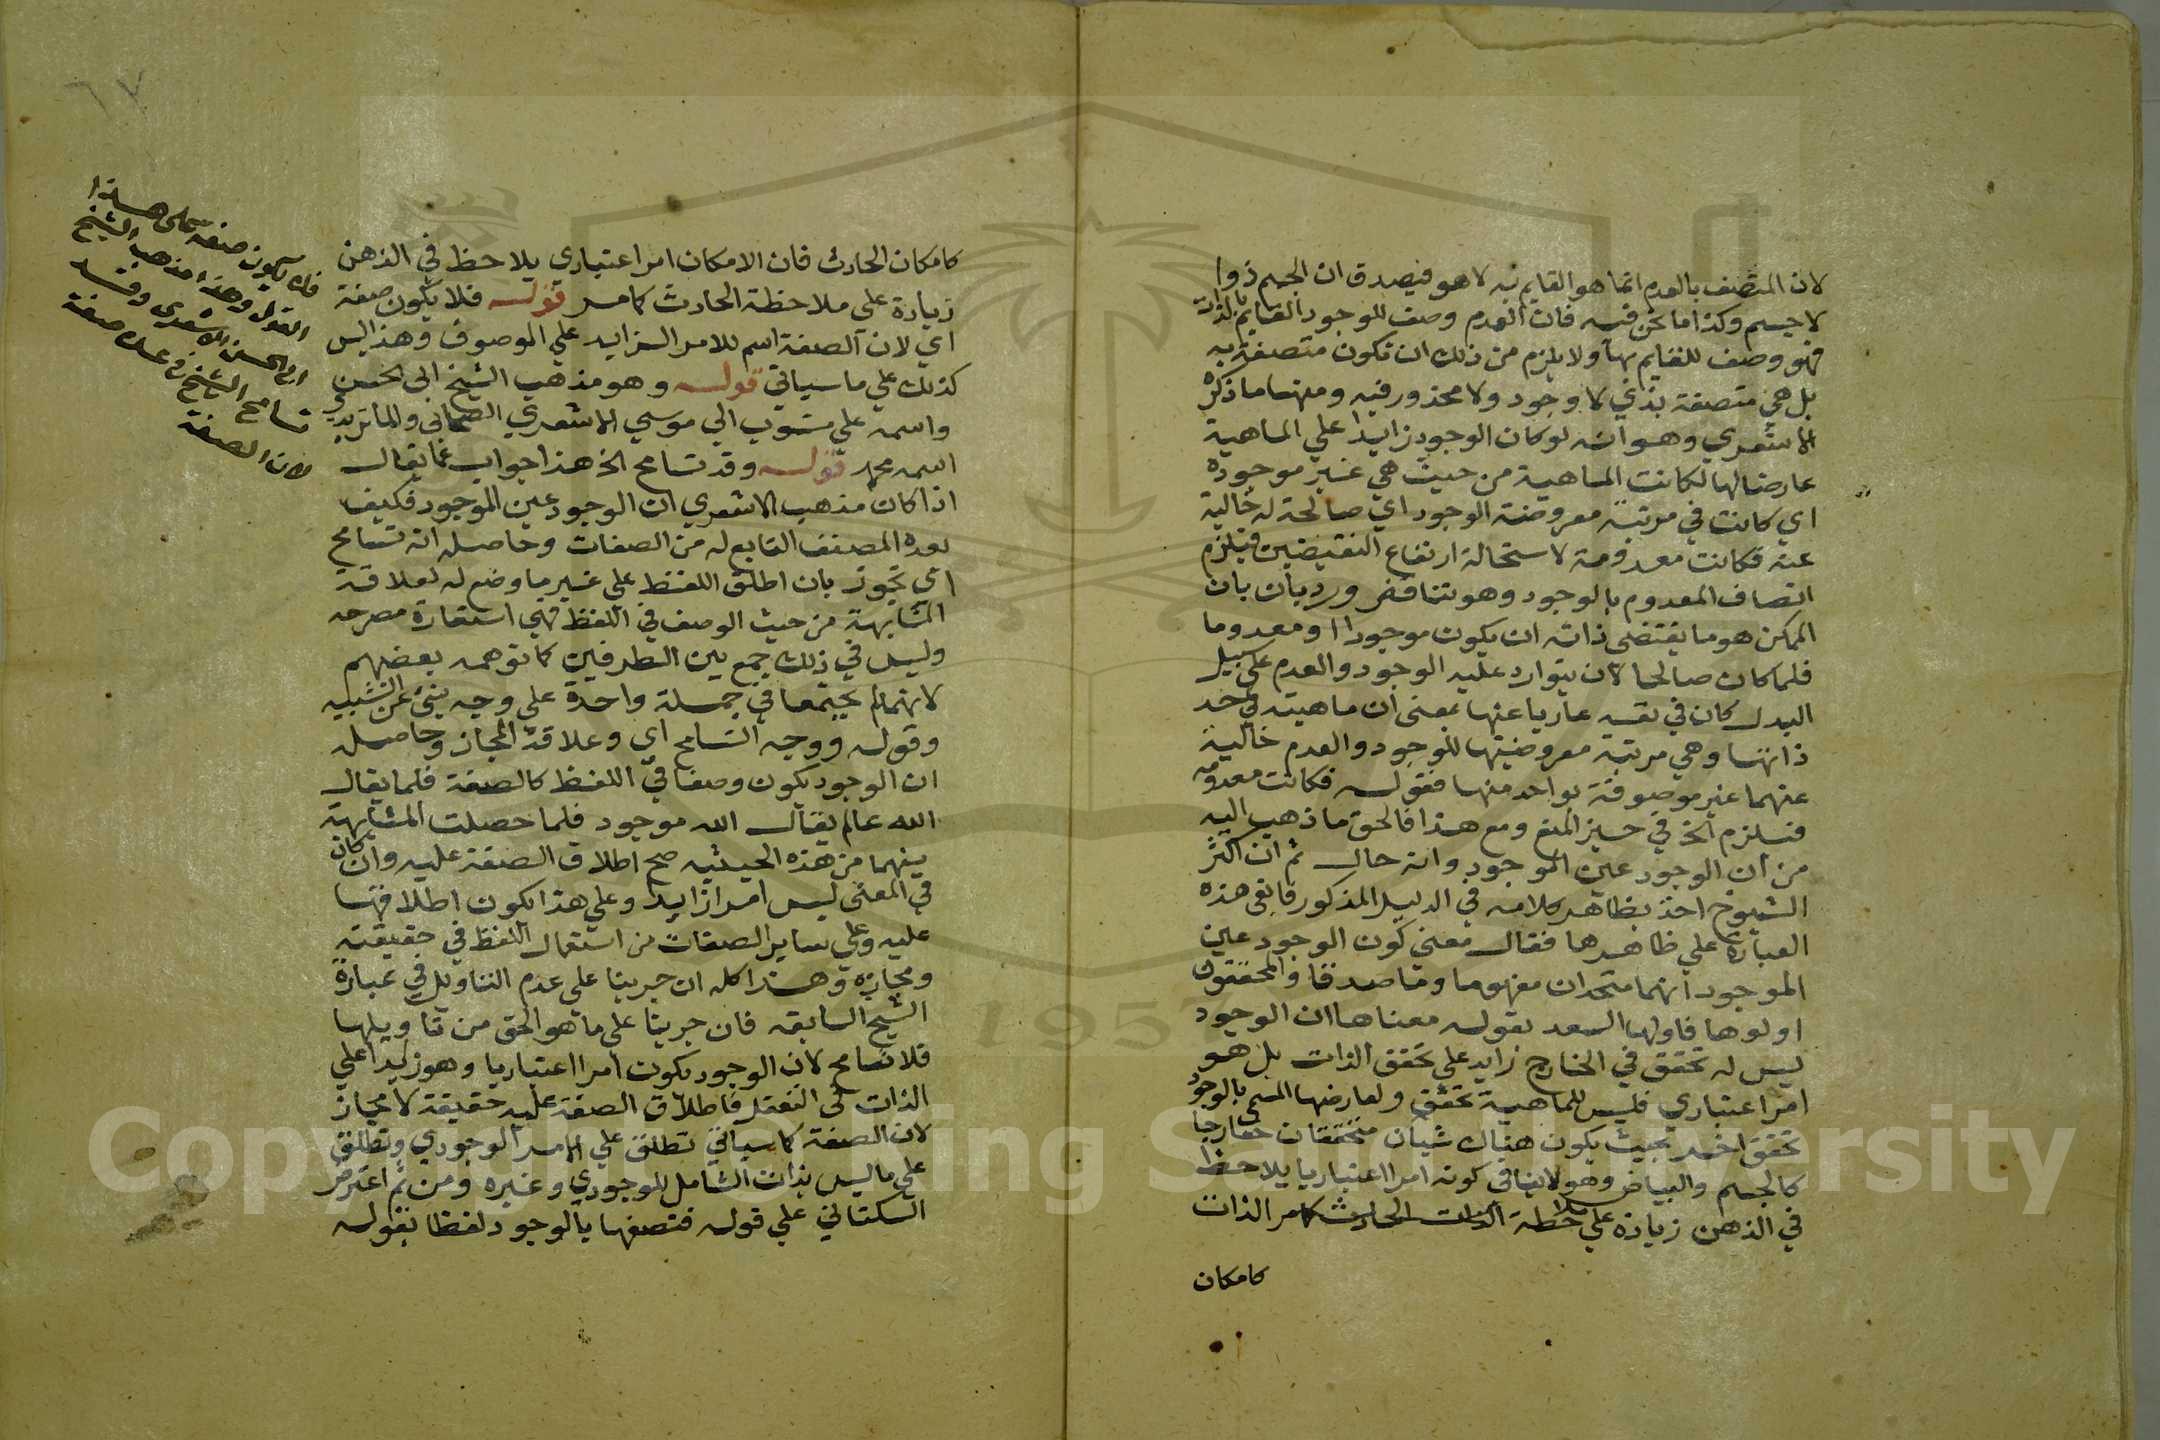 لان المتصف بالعدم انما هو القايم به لا هو فيصدق ان الجسم ذوا
لا جسم وكذا ما نحن فيه فان العدم وصف للوجود القايم بالذات
فهو وصف للقايم بها ولا يلزم من ذلك ان تكون متصفة به
بل هي متصفة بذي لا وجود ولا محذور فيه ومنها ما ذكره
الاشعري وهو انه لو كان الوجود زايدا علي الماهية
عارضا لها لكانت الماهية من حيث هي غير موجودة
اي كانت في مرتبة معروضة الوجود اي صالحة له خالية
عنه فكانت معدومة لاستحالة ارتفاع النقيضين فيلزم
اتصاف المعدوم بالوجود وهو تناقض ورد بان بان
الممكن هو ما يقتضى ذاته ان يكون موجودا ا ومعدوما
فلما كان صالحا لان يتوارد عليه الوجود والعدم علي سبيل
البدل كان في نفسه عاريا عنها بمعنى ان ماهيته في حد
ذاتها وهي مرتبة معروضيتها للوجود والعدم خالية
عنهما غير موصوفة بواحد منها فقوله فكانت معدومة
فيلزم الخ في حيز المنع ومع هذا فالحق ما ذهب اليه
من ان الوجود عين الموجود وانه حال ثم ان اكثر
الشيوخ اخذ بظاهر كلامه في الدليل المذكور فابقى هذه
العبارة علي ظاهرها فقال معنى كون الوجود عين
الموجود انهما متحدان مفهوما وماصدقا والمحققون
اولوها فاولها السعد بقوله معناها ان الوجود
ليس له تحقق في الخارج زايد على تحقق الذات بل هو
امر اعتباري فليس للماهية تحقق ولعارضها المسمى بالوجود
تحقق اخر بحيث يكون هناك شيان متحققان خارجا
كالجسم والبياض وهو لا ينافي كونه امرا اعتباريا يلاحظ
في الذهن زيادة علي ملاحظة الذات الحادث كامر الذات
كامكان
٦٧
كامكان الحادث فان الامكان امر اعتباري يلاحظ في الذهن
زيادة على ملاحظة الحادث كامر قوله فلا يكون صفة
اي لان الصفة اسم للامر الزايد علي الموصوف وهذا ليس
كذلك علي ما سياتي قوله وهو مذهب الشيخ ابي الحسن
واسمه علي منسوب الي موسي الاشعري الصحابي والماتريدي
اسمه محمد قوله وقد تسامح الخ هذا جواب عما يقال
اذا كان مذهب الاشعري ان الوجود عين الموجود فكيف
يعده المصنف التابع له من الصفات وحاصله انه تسامح
اي تجوز بان اطلق اللفظ على غير ما وضع له لعلاقة
المشابهة من حيث الوصف في اللفظ فهي استعارة مصرحه
وليس في ذلك جمع بين الطرفين كما توهمه بعضهم
لانهما لم يجتمعا في جملة واحدة على وجه ينبئ عن التشبيه
وقوله ووجه التسامح اي وعلاقة المجاز وحاصله
ان الوجود يكون وصفا في اللفظ كالصفة فلما يقال
الله عالم يقال الله موجود فلما حصلت المشابهة
بينهما من هذه الحيثيه صح اطلاق الصفة عليه وان كان
في المعنى ليس امرا زايدا وعلي هذا يكون اطلاقها
عليه وعلي ساير الصفات من استعمال اللفظ في حقيقته
ومجازه وهذا كله ان جرينا على عدم التاويل في عبارة
الشيخ السابقه فان جرينا على ما هو الحق من تاويلها
فلا تسامح لان الوجود يكون امرا اعتباريا وهو زايدا علي
الذات في التعقل فاطلاق الصفة عليه حقيقة لا مجاز
لان الصفة كما سياتي تطلق علي الامر الوجودي وتطلق
علي ما ليس بذات الشامل للوجودي وغيره ومن ثم اعترض
السكتاني علي قوله فتصفها بالوجود لفظا بقوله
فلا يكون صفة على هذا
القول وهذا مذهب الشيخ
ابي الحسن الاشعري وقد
تسامح الشيخ في عده صفة
لان الصفة
1957
Copyright © King Saud University